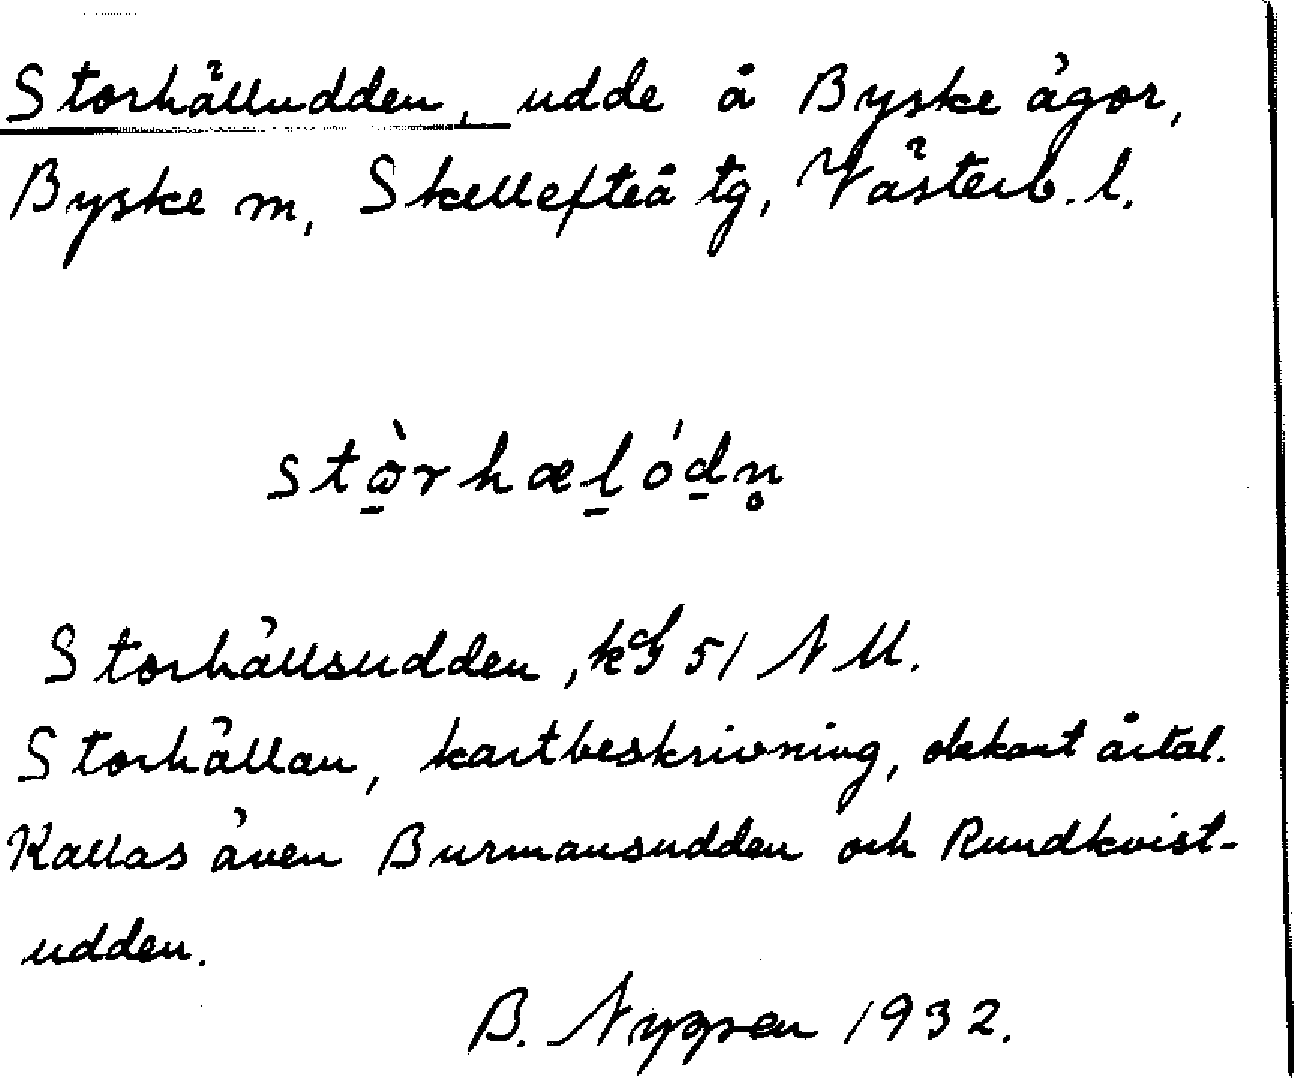 Storhälludden, udde å Byske ägor,
Byske sn, Skellefteå tg, Västerb. l.
stɷ̠̀rhæl̠ód̠n̥
Storhällsudden, 51 NM.
Storhällan, kartbeskrivning, obekant årtal.
Kallas även Burmansudden och Rundkvist-
udden.
B. Nygren 1932.